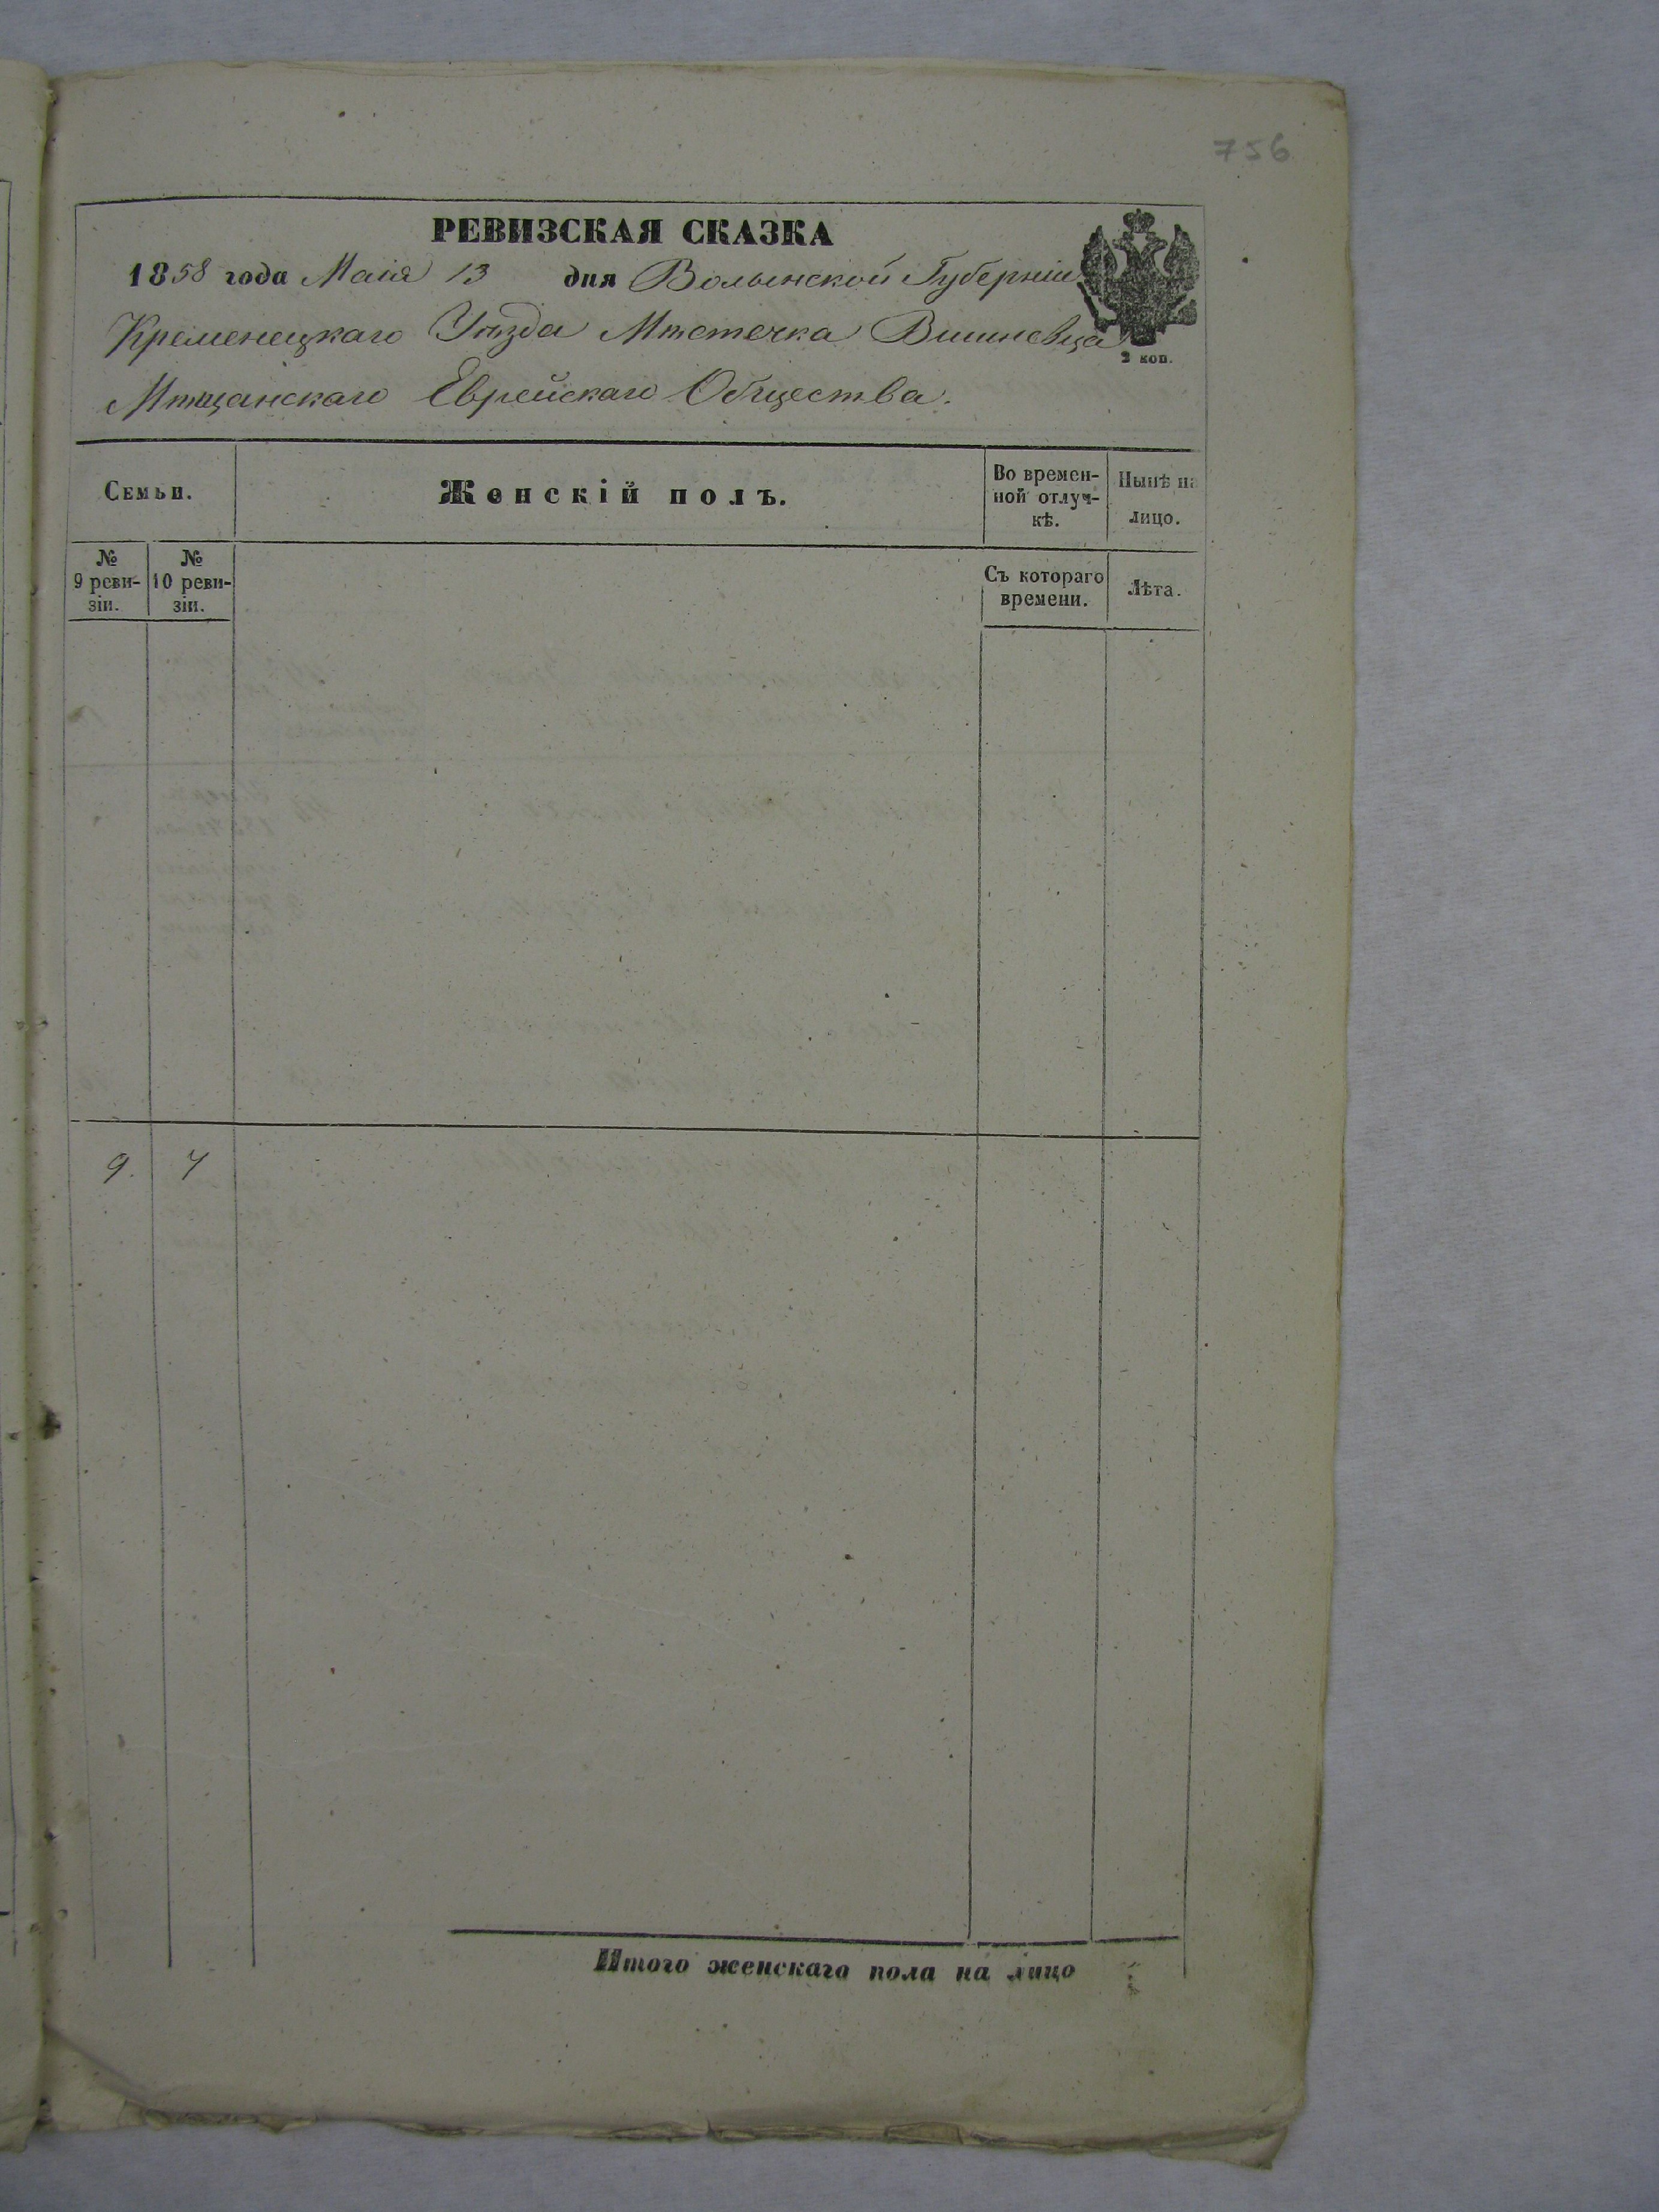 756
РЕВИЗСКАЯ СКАЗКА
1858 года Маія 13 дня Волынской Губерніи
Кременецкаго Уѣзда Мѣстечка Вишневца
2 коп.
Мѣщанскаго Еврейскаго Общества.
Семьи.
Женскій полъ.
Во времен-
ной отлуч-
кѣ.
Нынѣ на
лицо.
№
9 реви-
зіи.
№
10 реви-
зіи.
Съ котораго
времени.
Лѣта.
9. 7
Итого женскаго пола на лицо